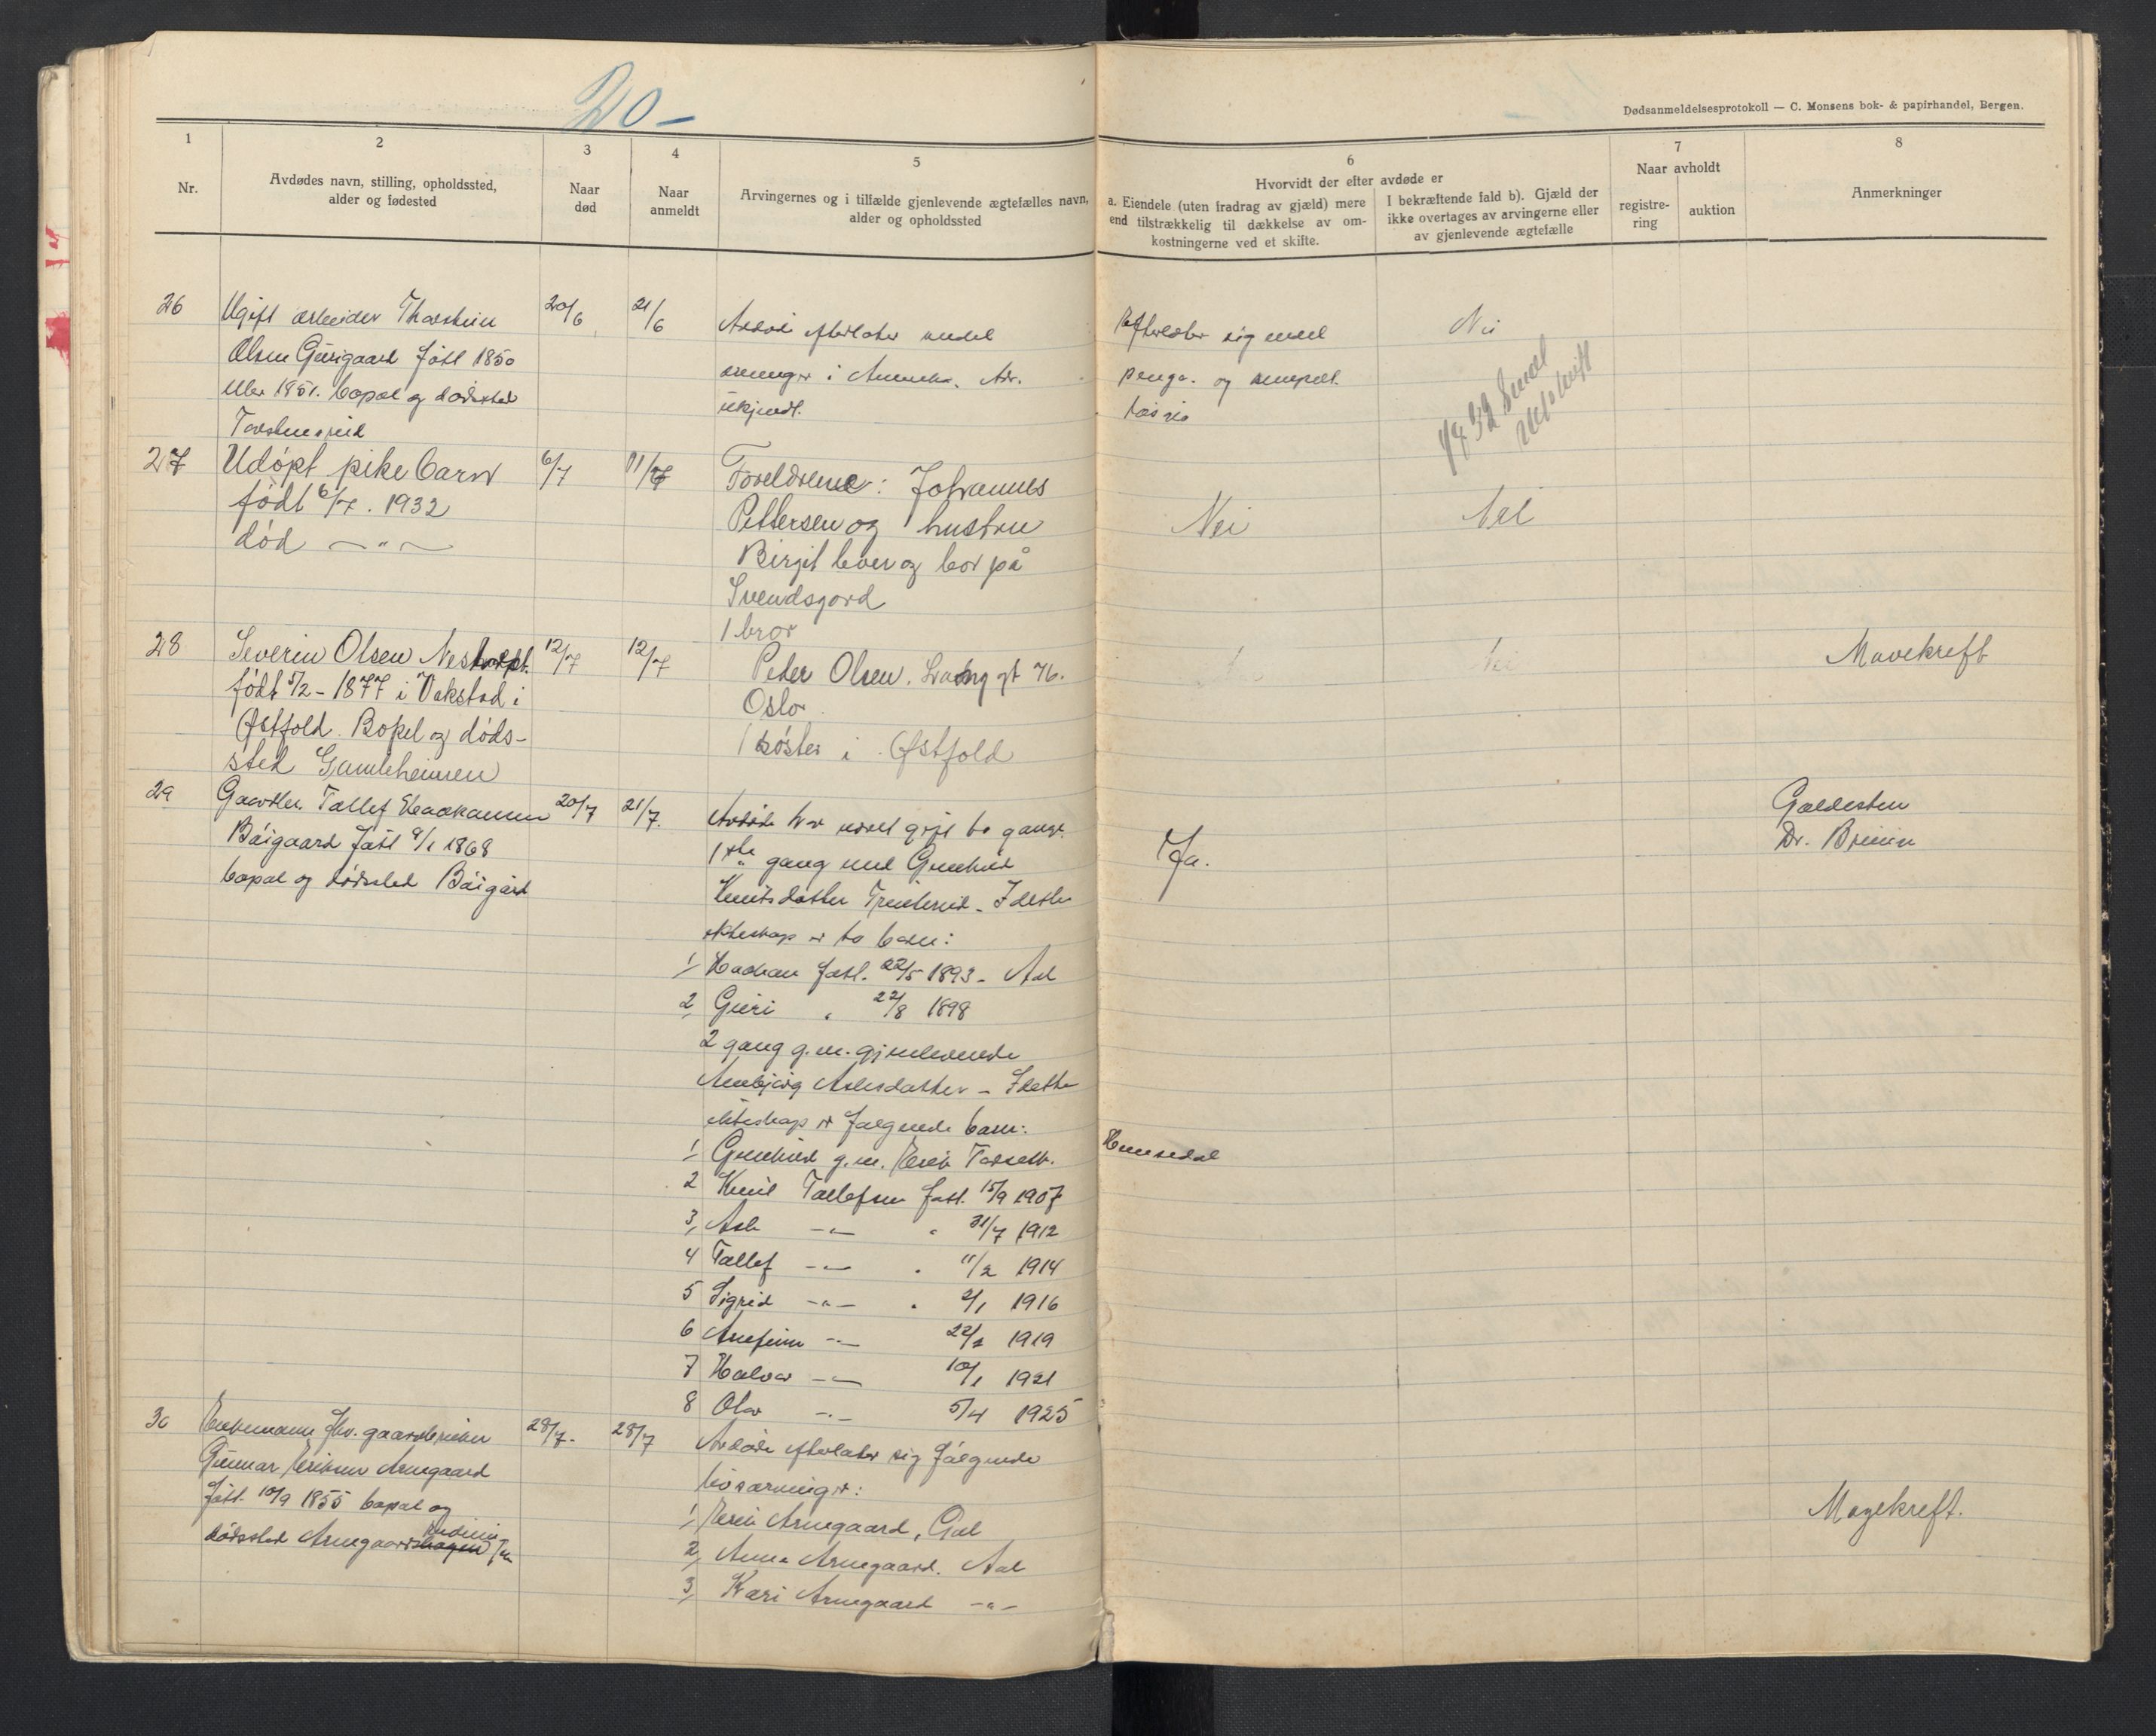 20-
Dødsanmeldelsesprotokoll — C. Monsens bok- & papirhandel, Bergen.
1
Nr.
2
Avdødes navn, stilling, opholdssted,
alder og fødested
3
Naar
død
4
Naar
anmeldt
5
Arvingernes og i tilfælde gjenlevende ægtefælles navn,
alder og opholdssted
6
Hvorvidt der efter avdøde er
a. Eiendele (uten fradrag av gjæld) mere
end tilstrækkelig til dækkelse av om-
kostningerne ved et skifte.
I bekræftende fald b). Gjæld der
ikke overtages av arvingerne eller
av gjenlevende ægtefælle
7
Naar avholdt
registre-
ring
auktion
8
Anmerkninger
26
Ugift arbeider Thorstein
Olsen Gurigaard født 1850
eller 1851. bopæl og dødssted
20/6
21/6
Avdøde efterlater endel
arvinger i Amerika. Adr.
ukjendt.
Efterlater sig endel
penge. og
Nei
27
Udøpt pikebarn
født 6/7. 1932
død —„—
6/7
11/7
Foreldrene: Johannes
Pettersen og hustru
Birgit lever og bor på
Svendsgord
1 bror
Nei
Nei
28
Severin Olsen
født 5/2 - 1877 i Vakstad i
Østfold. Bopel og døds-
sted Gamleheimen
12/7
12/7
Peder Olsen. gt 76.
Oslo
1 søster i Østfold
Nei
Mavekreft
29
Tollef Haakansen
Båigaard født 9/1 1868
bopæl og dødssted Båigård
20/7
21/7.
Avdøde har været gift to gange.
1ste gang med Gunhild
Knutsdatter - I dette
ekteskap er to barn:
1, Haakan født. 22/5 1893 - Aal
2, Guri „ 22/8 1898
2 gang g.m. gjenlevende
Asledatter - I dette
ekteskap er følgende barn:
1, Gunhild g.m. Erik
Hemsedal
2 Knut Tollefsen født. 15/9 1907
3, Asle —„— „ 31/7 1912
4 Tollef —„— „ 11/2 1914
5 Sigrid —„— „ 2/1 1916
6 Arnfinn —„— 22/2 1919
7 Halvor —„— 10/1 1921
8 Olav —„— 5/4 1925
Ja.
Galdesten
Dr.
30
Enkemann fhv. gaardbruker
Gunnar Eriksen Arnegaard
født. 10/9 1855 bopæl og
dødssted
28/7.
28/7
Avdøde efterlater sig følgende
livsarvinger:
1, Erik Arnegaard, Gol
2, Anne Arnegaard. Aal
3, Kari Arnegaard —„—
Magekreft.